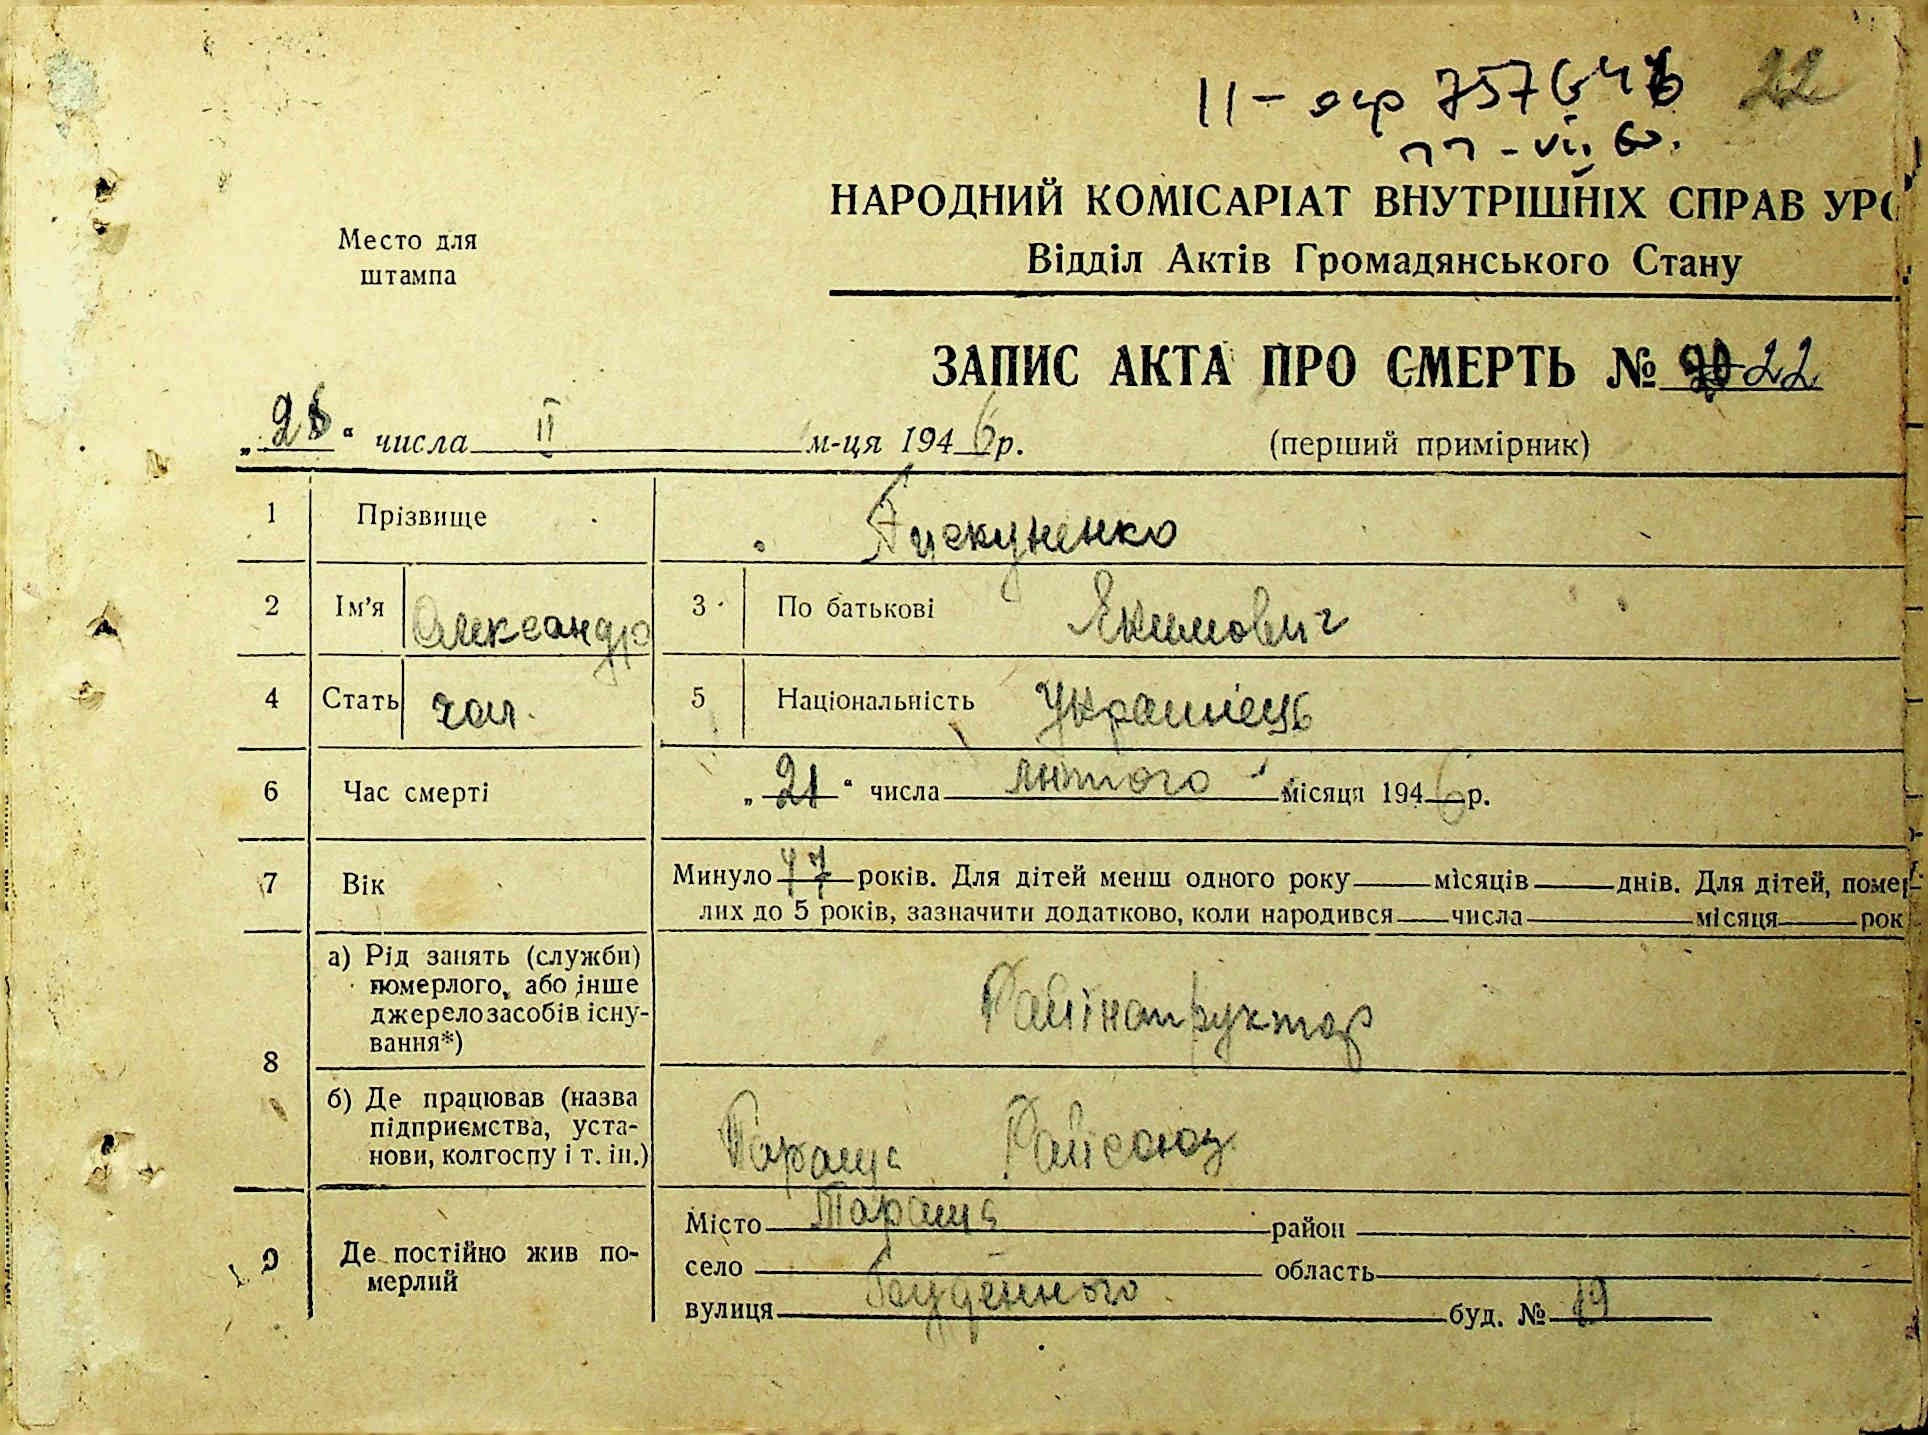 22
НАРОДНИЙ КОМІСАРІАТ ВНУТРІШНІХ СПРАВ УРС
Место для
штампа
Відділ Актів Громадянського Стану
ЗАПИС АКТА ПРО СМЕРТЬ № 22
„ “ числа II м-ця 1946 р.
(перший примірник)
1 Прізвище
2 Ім’я Александр 3 По батькові Екимович
4 Стать чол. 5 Національність Українець
6 Час смерті „21“ числа лютого місяця 1946 р.
7 Вік Минуло 47 років. Для дітей менш одного року місяців днів. Для дітей, помер-
лих до 5 років, зазначити додатково, коли народився числа місяця рок
8 а) Рід занять (служби)
померлого, або інше
джерело засобів існу-
вання*)
Райінструктор
б) Де працював (назва
підприємства, уста-
нови, колгоспу і т. ін.)
Тараща Райсоюз
9 Де постійно жив по-
мерлий
Місто Тараща район
село область
вулиця Будённого буд. № 19